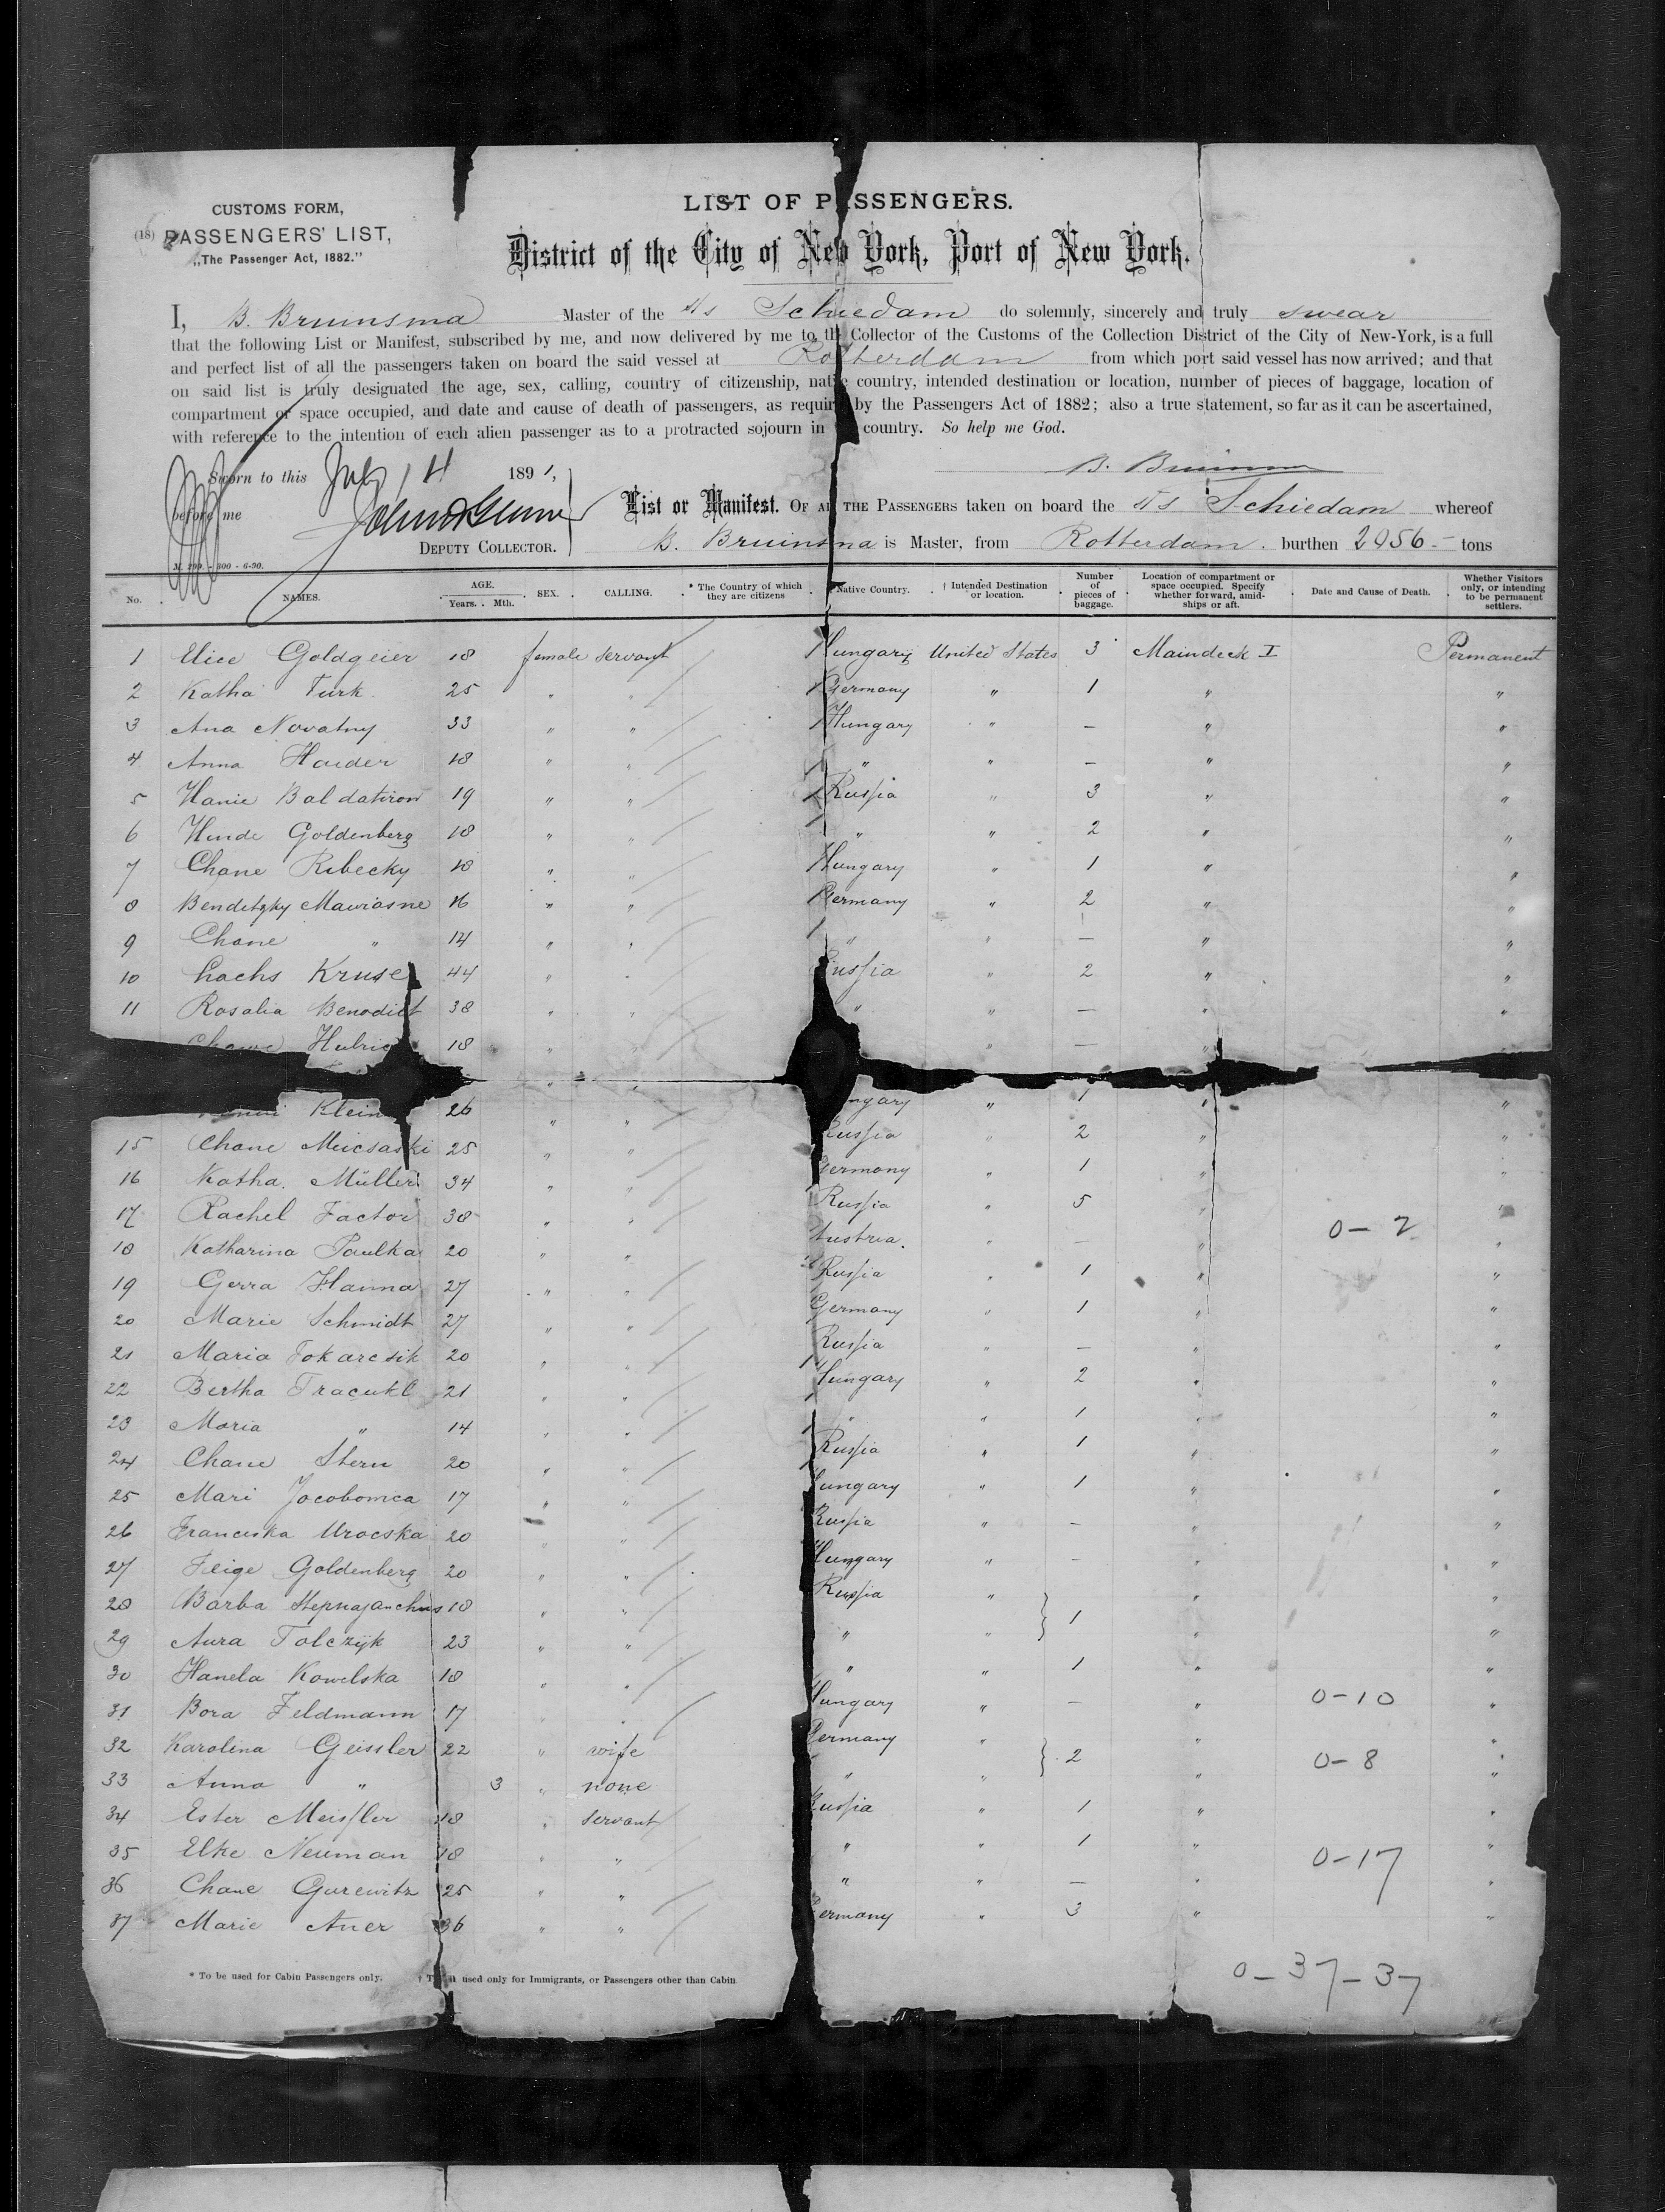 LIST OF PASSENGERS.
CUSTOMS FORM,
(18) PASSENGERS' LIST,
„The Passenger Act, 1882.”
District of the City of New York, Port of New York.
I, B. Bruinsma Master of the s/s Schiedam do solemnly, sincerely and truly swear
that the following List or Manifest, subscribed by me, and now delivered by me to the Collector of the Customs of the Collection District of the City of New-York, is a full
and perfect list of all the passengers taken on board the said vessel at Rotterdam from which port said vessel has now arrived; and that
on said list is truly designated the age, sex, calling, country of citizenship, native country, intended destination or location, number of pieces of baggage, location of
compartment or space occupied, and date and cause of death of passengers, as required by the Passengers Act of 1882; also a true statement, so far as it can be ascertained,
with reference to the intention of each alien passenger as to a protracted sojourn in country. So help me God.
B. Bruinsma
Sworn to this July 14 1891,
before me
DEPUTY COLLECTOR.
List or Manifest. OF ALL THE PASSENGERS taken on board the s/s Schiedam whereof
B. Bruinsma is Master, from Rotterdam. burthen 2956 - tons
No. NAMES. AGE. Years. Mth. SEX. CALLING. * The Country of which they are citizens Native Country. † Intended Destination or location. Number of pieces of baggage. Location of compartment or space occupied. Specify whether forward, amidships or aft. Date and Cause of Death. Whether Visitors only, or intending to be permanent settlers.
1 Elice Goldgeier 18 female servant Hungary United States 3 Maindeck I Permanent
2 Katha Turk 25 " " Germany " 1 " "
3 Ana Novatny 33 " " Hungary " — " "
4 Anna Haider 18 " " " " — " "
5 Hanie Baldatiron 19 " " Russia " 3 " "
6 Hinde Goldenberg 18 " " " " 2 " "
7 Chane Ribecky 18 " " Hungary " 1 " "
8 Benditzky Mawiasne 16 " " Germany " 2 " "
9 Chane " 14 " " " " — " "
10 Lachs Kruse 44 " " Russia " 2 " "
11 Rosalia Benodict 38 " " " " — " "
18 " " " — "
Klein 26 " " ngary " 1 " "
15 Chane 25 " " Russia " 2 " "
16 Katha. Müller 34 " " Germany " 1 " "
17 Rachel Factor 38 " " Russia " 5 " "
0 — 2
18 Katharina Paulka 20 " " Austria. " — " "
19 Gerra Hanna 27 " " Russia " 1 " "
20 Marie Schmidt 27 " " Germany " 1 " "
21 Maria Tokarcsik 20 " " Russia " — " "
22 Bertha Tracukl 21 " " Hungary " 2 " "
23 Maria " 14 " " " " 1 " "
24 Chane Stern 20 " " Russia " 1 " "
25 Mari Jocobomca 17 " " Hungary " 1 " "
26 Franciska Urocska 20 " " Russia " — " "
27 Feige Goldenberg 20 " " Hungary " — " "
28 Barba 18 " " Russia " 1 " "
29 Aura Tolczijk 23 " " " " " "
30 Hanela Kowelska 18 " " " " 1 " "
31 Bora Feldmann 17 " " Hungary " — " 0-10 "
32 Karolina Geissler 22 " wife Germany " 2 " "
33 Anna " 3 " none " " " 0-8 "
34 Ester Meissler 18 " servant Russia " 1 " "
35 Elke Neuman 18 " " " " 1 " 0-17 "
36 Chane Gurewitz 25 " " " " — " "
37 Marie Auer 36 " " Germany " 3 " "
* To be used for Cabin Passengers only. † used only for Immigrants, or Passengers other than Cabin
0 - 37 - 37